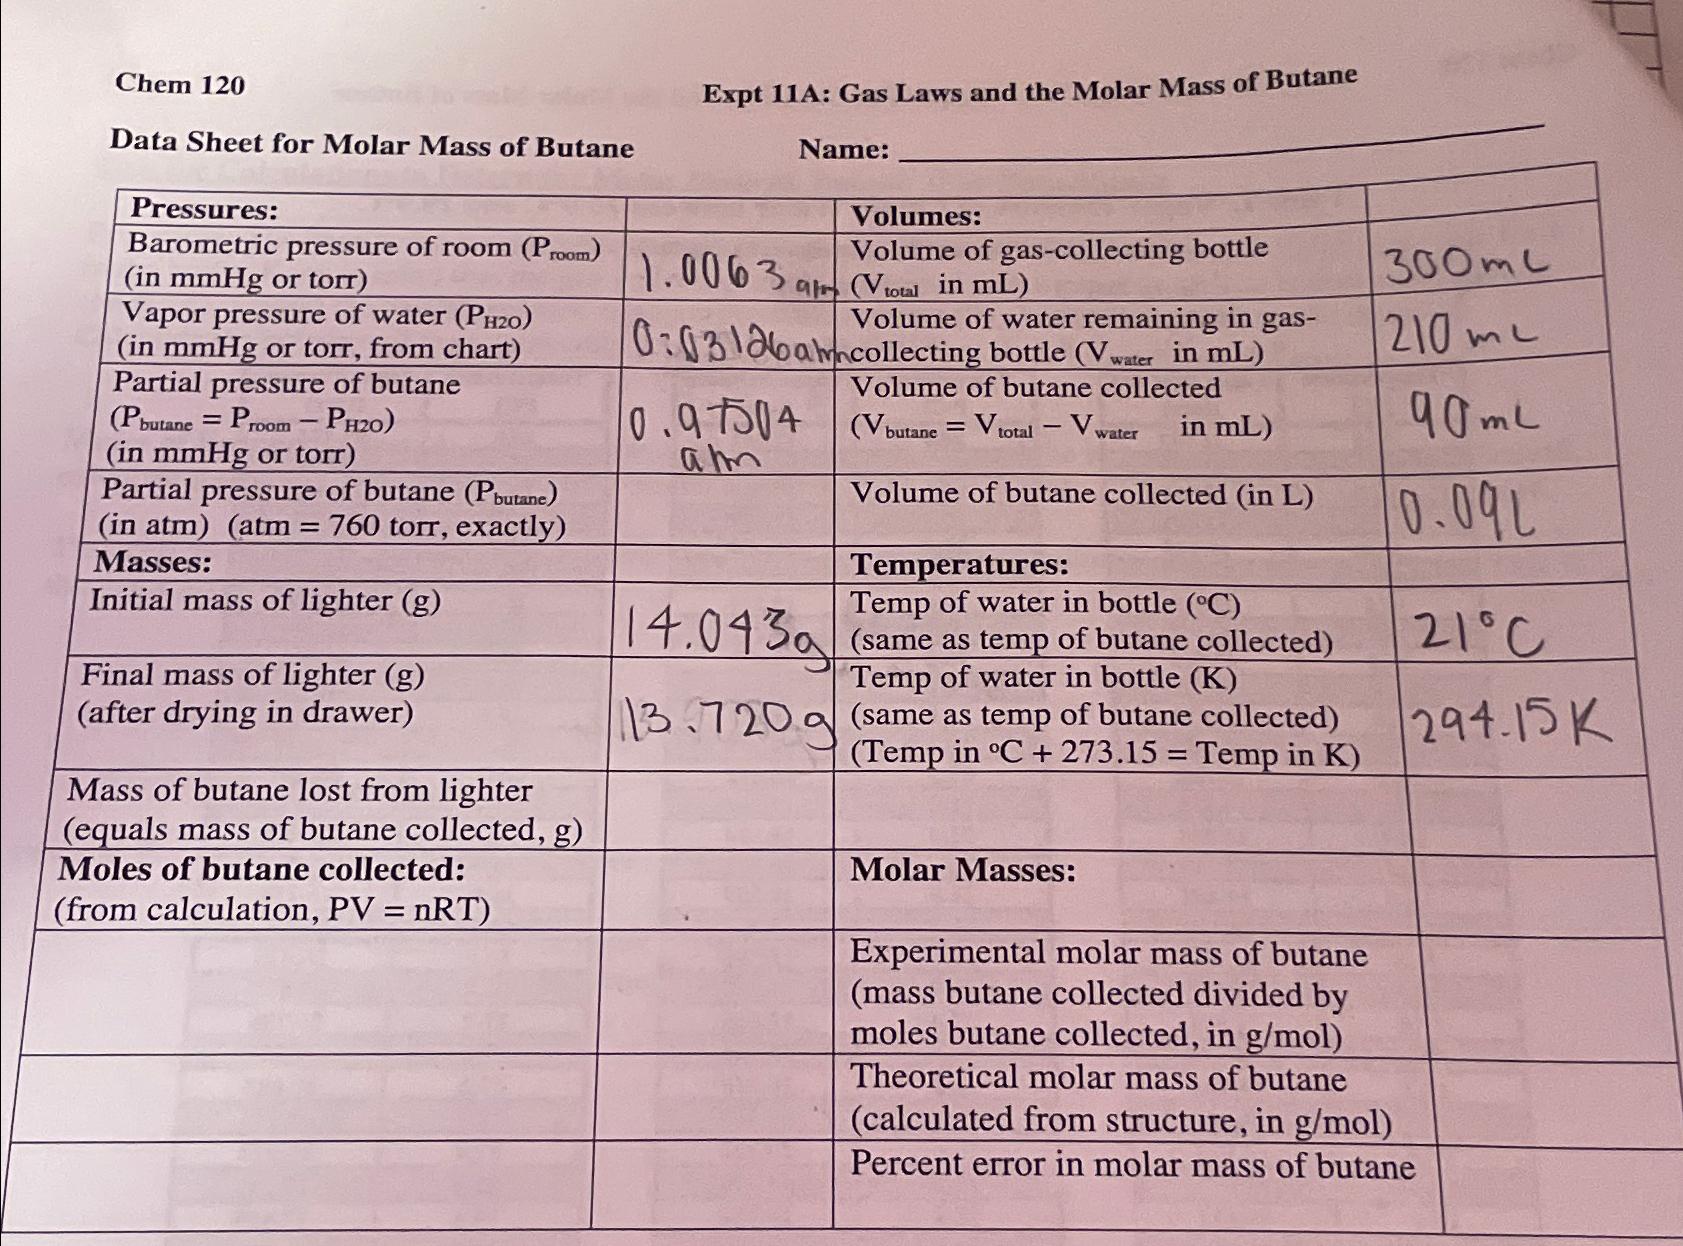 Chem 120
Expt 11A: Gas Laws and the Molar Mass of Butane
Data Sheet for Molar Mass of Butane
Name:
Pressures:
Volumes:
Barometric pressure of room (Proom)
(in mmHg or torr)
1.0063 atm
Volume of gas-collecting bottle
(Vtotal in mL)
300mL
Vapor pressure of water (PH2O)
(in mmHg or torr, from chart)
0.03126atm
Volume of water remaining in gas-
collecting bottle (Vwater in mL)
210 mL
Partial pressure of butane
(Pbutane = Proom – PH2O)
(in mmHg or torr)
0.97504
atm
Volume of butane collected
(Vbutane = Vtotal – Vwater in mL)
90mL
Partial pressure of butane (Pbutane)
(in atm) (atm = 760 torr, exactly)
Volume of butane collected (in L)
0.09L
Masses:
Temperatures:
Initial mass of lighter (g)
14.043g
Temp of water in bottle (°C)
(same as temp of butane collected)
21°C
Final mass of lighter (g)
(after drying in drawer)
13.720g
Temp of water in bottle (K)
(same as temp of butane collected)
(Temp in °C + 273.15 = Temp in K)
294.15K
Mass of butane lost from lighter
(equals mass of butane collected, g)
Moles of butane collected:
(from calculation, PV = nRT)
Molar Masses:
Experimental molar mass of butane
(mass butane collected divided by
moles butane collected, in g/mol)
Theoretical molar mass of butane
(calculated from structure, in g/mol)
Percent error in molar mass of butane